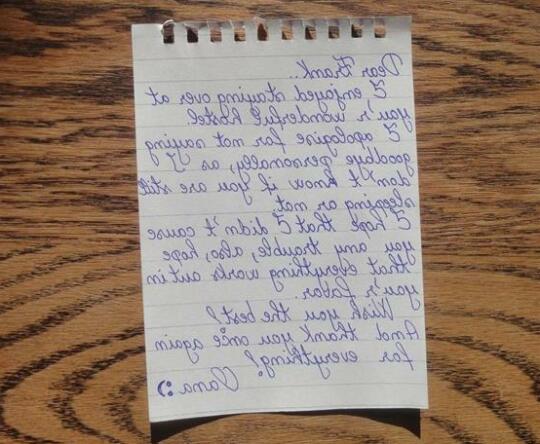 Dear Frank..
I enjoyed staying over at
you'r wonderful hostel.
I apologise for not saying
goodbye personally, as I
don't know if you are still
sleeping or not.
I hope that I didn't cause
you any trouble, also, hope
that everything works out in
you'r favor.
Wish you the best!
And thank you once again
for everything!
Oana :)